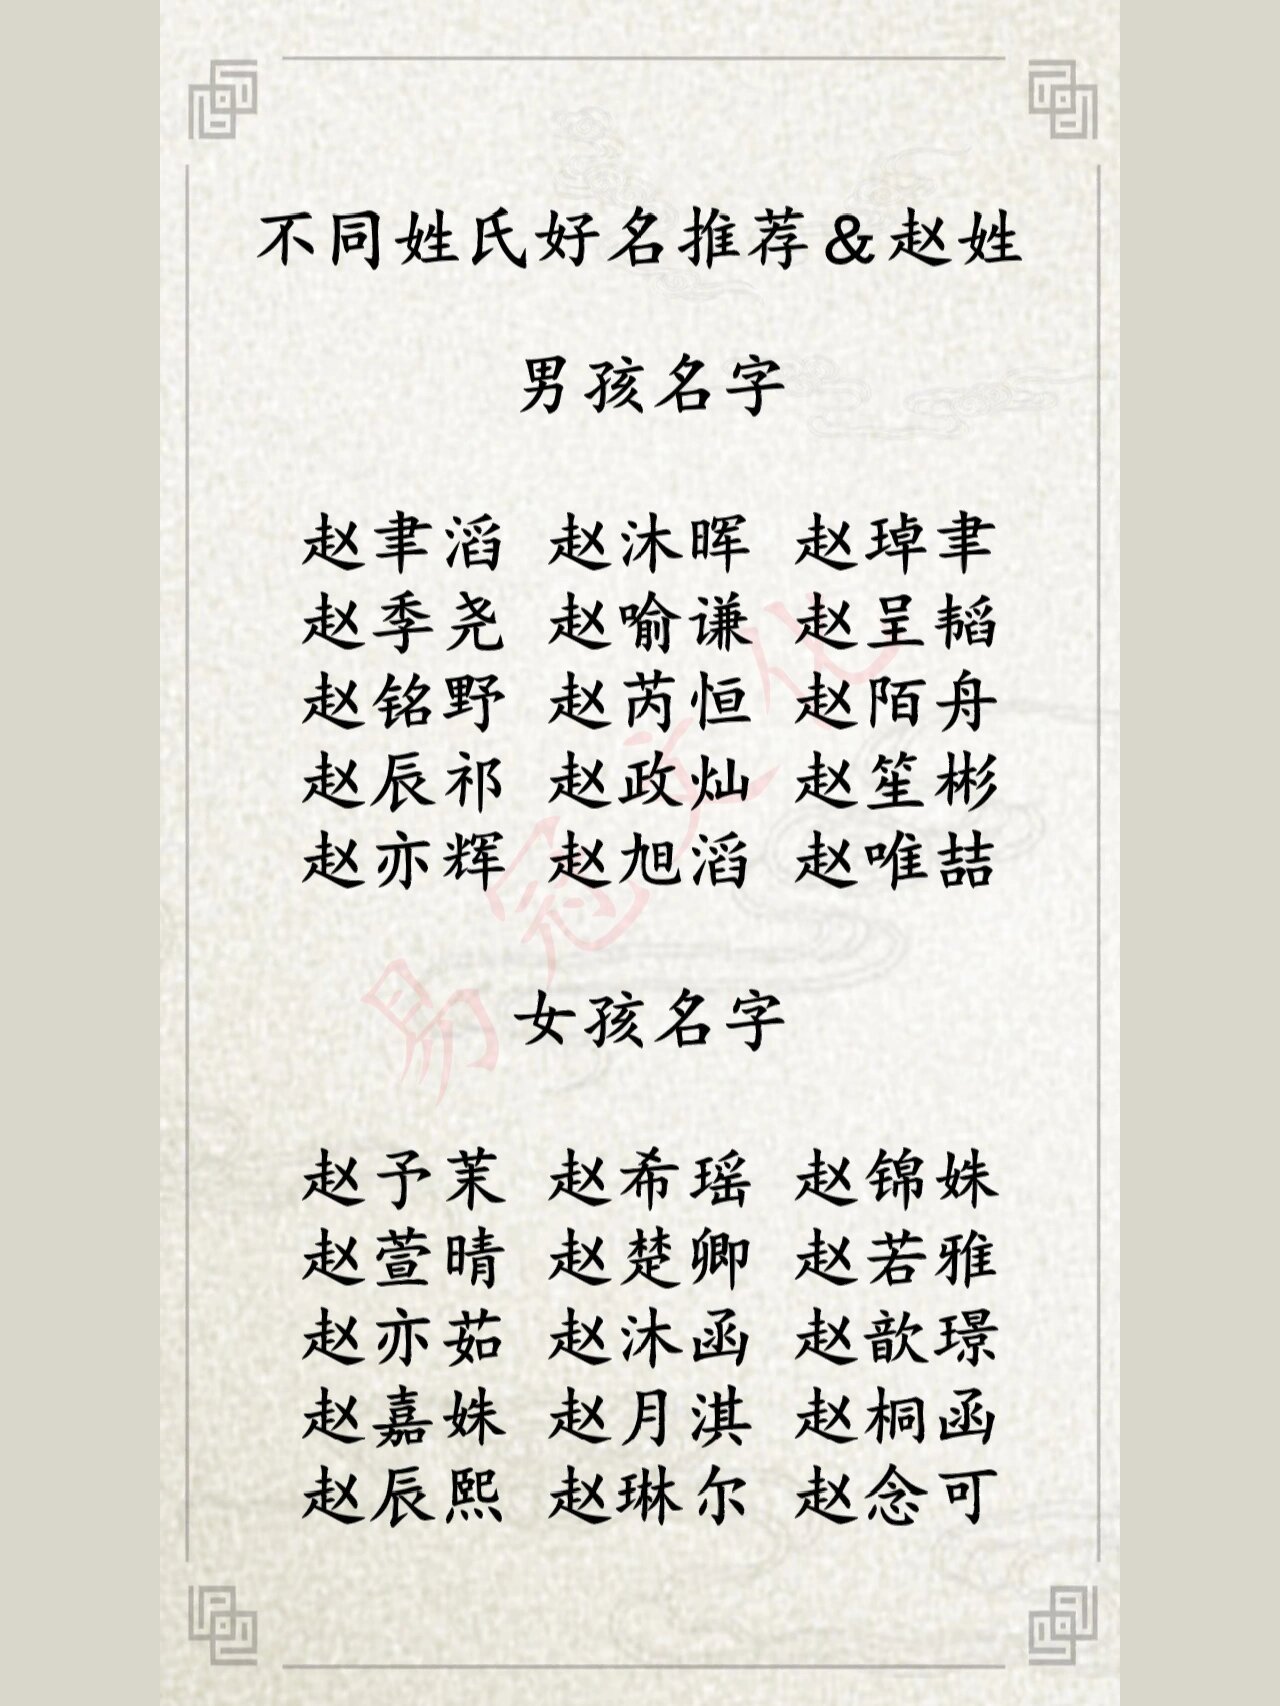 不同姓氏好名推荐&赵姓
男孩名字
赵聿滔 赵沐晖 赵琸聿
赵季尧 赵喻谦 赵呈韬
赵铭野 赵芮恒 赵陌舟
赵辰祁 赵政灿 赵笙彬
赵亦辉 赵旭滔 赵唯喆
女孩名字
赵予茉 赵希瑶 赵锦姝
赵萱晴 赵楚卿 赵若雅
赵亦茹 赵沐函 赵歆璟
赵嘉姝 赵月淇 赵桐函
赵辰熙 赵琳尔 赵念可
易冠文化